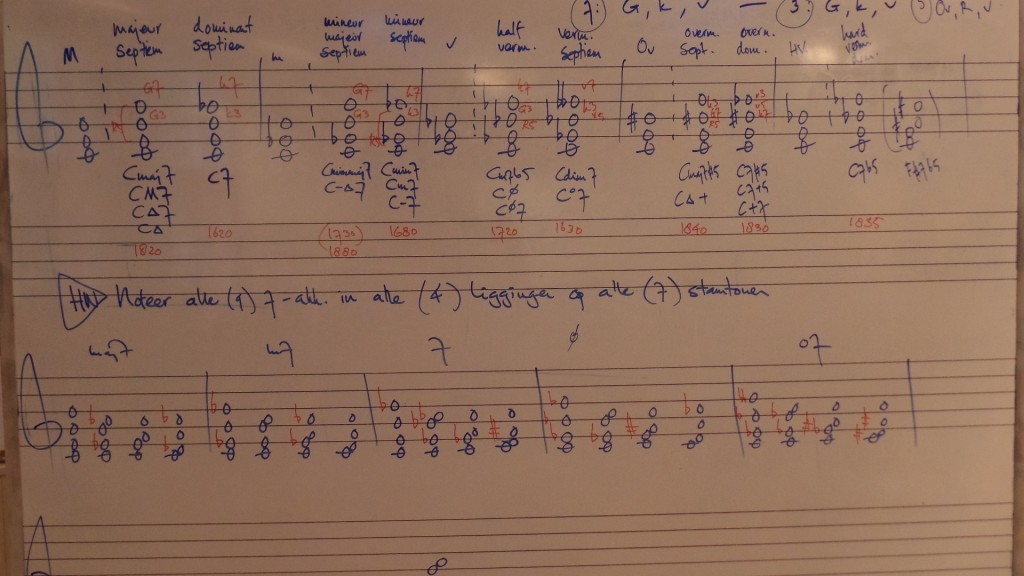 7: G, k, v — 3: G, k, v 5 Ov, R, v.
M majeur septiem dominant septiem m mineur majeur septiem mineur septiem v half verm. verm. septiem Ov overm. sept. overm. dom. HV hard verm.
G7 k7 G7 k7 k7 v7
G3 k3 G3 k3 G3 k3
Cmaj7 C7 Cminmaj7 Cmin7 Cm7b5 Cdim7 Cmaj7#5 C7#5 C7b5 F#7b5
CM7 C-Δ7 Cm7 Cø C°7 CΔ+ C7+5
CΔ7 C-7 Cø7 C+7
CΔ
1820 1620 (1730) 1680 1720 1630 1840 1830 1835
1880
HW Noteer alle (9) 7-akk. in alle (4) liggingen op alle (7) stamtonen
maj7 m7 7 ø o7